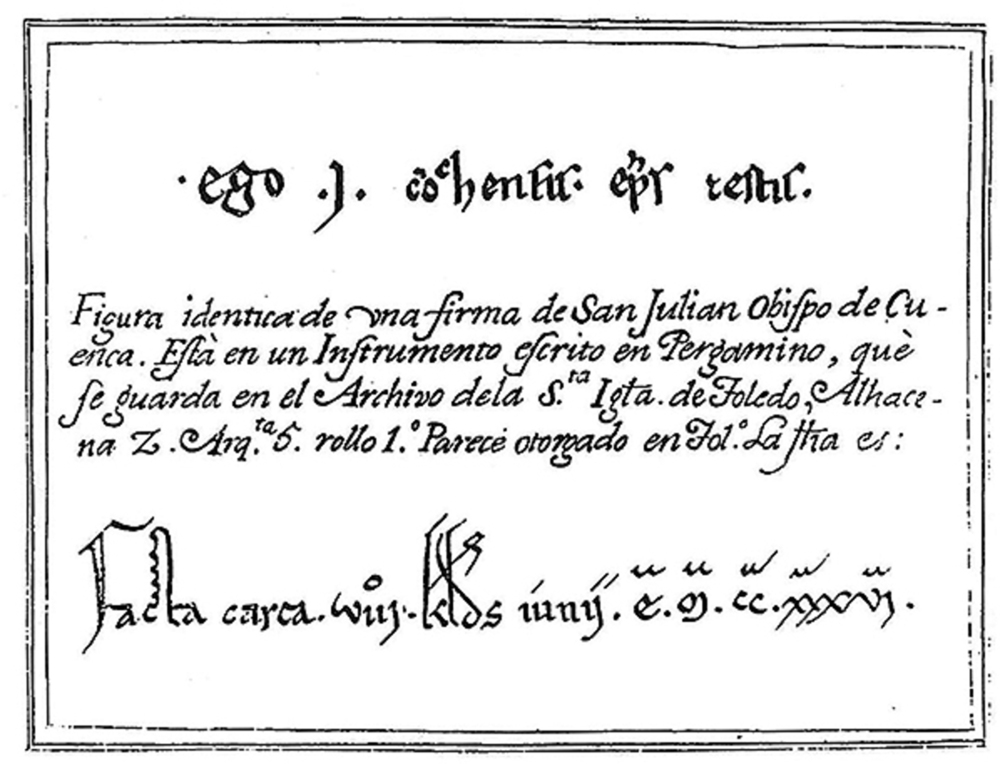 · ego .J. cõchensis· ep̃s testis.
Figura identica de vna firma de San Julian Obiſpo de Cu-
enca. Eſtà en un Inſtrumento eſcrito en Pergamino, què
ſe guarda en el Archivo dela S.ta Igɫa. de Toledo, Alhace-
na Z. Arq.ta 5. rollo 1.º Parece otorgado en Tol.º La ſħa es:
Facta carta. viij· kɫds iunij. e. m. cc. xxxvi.